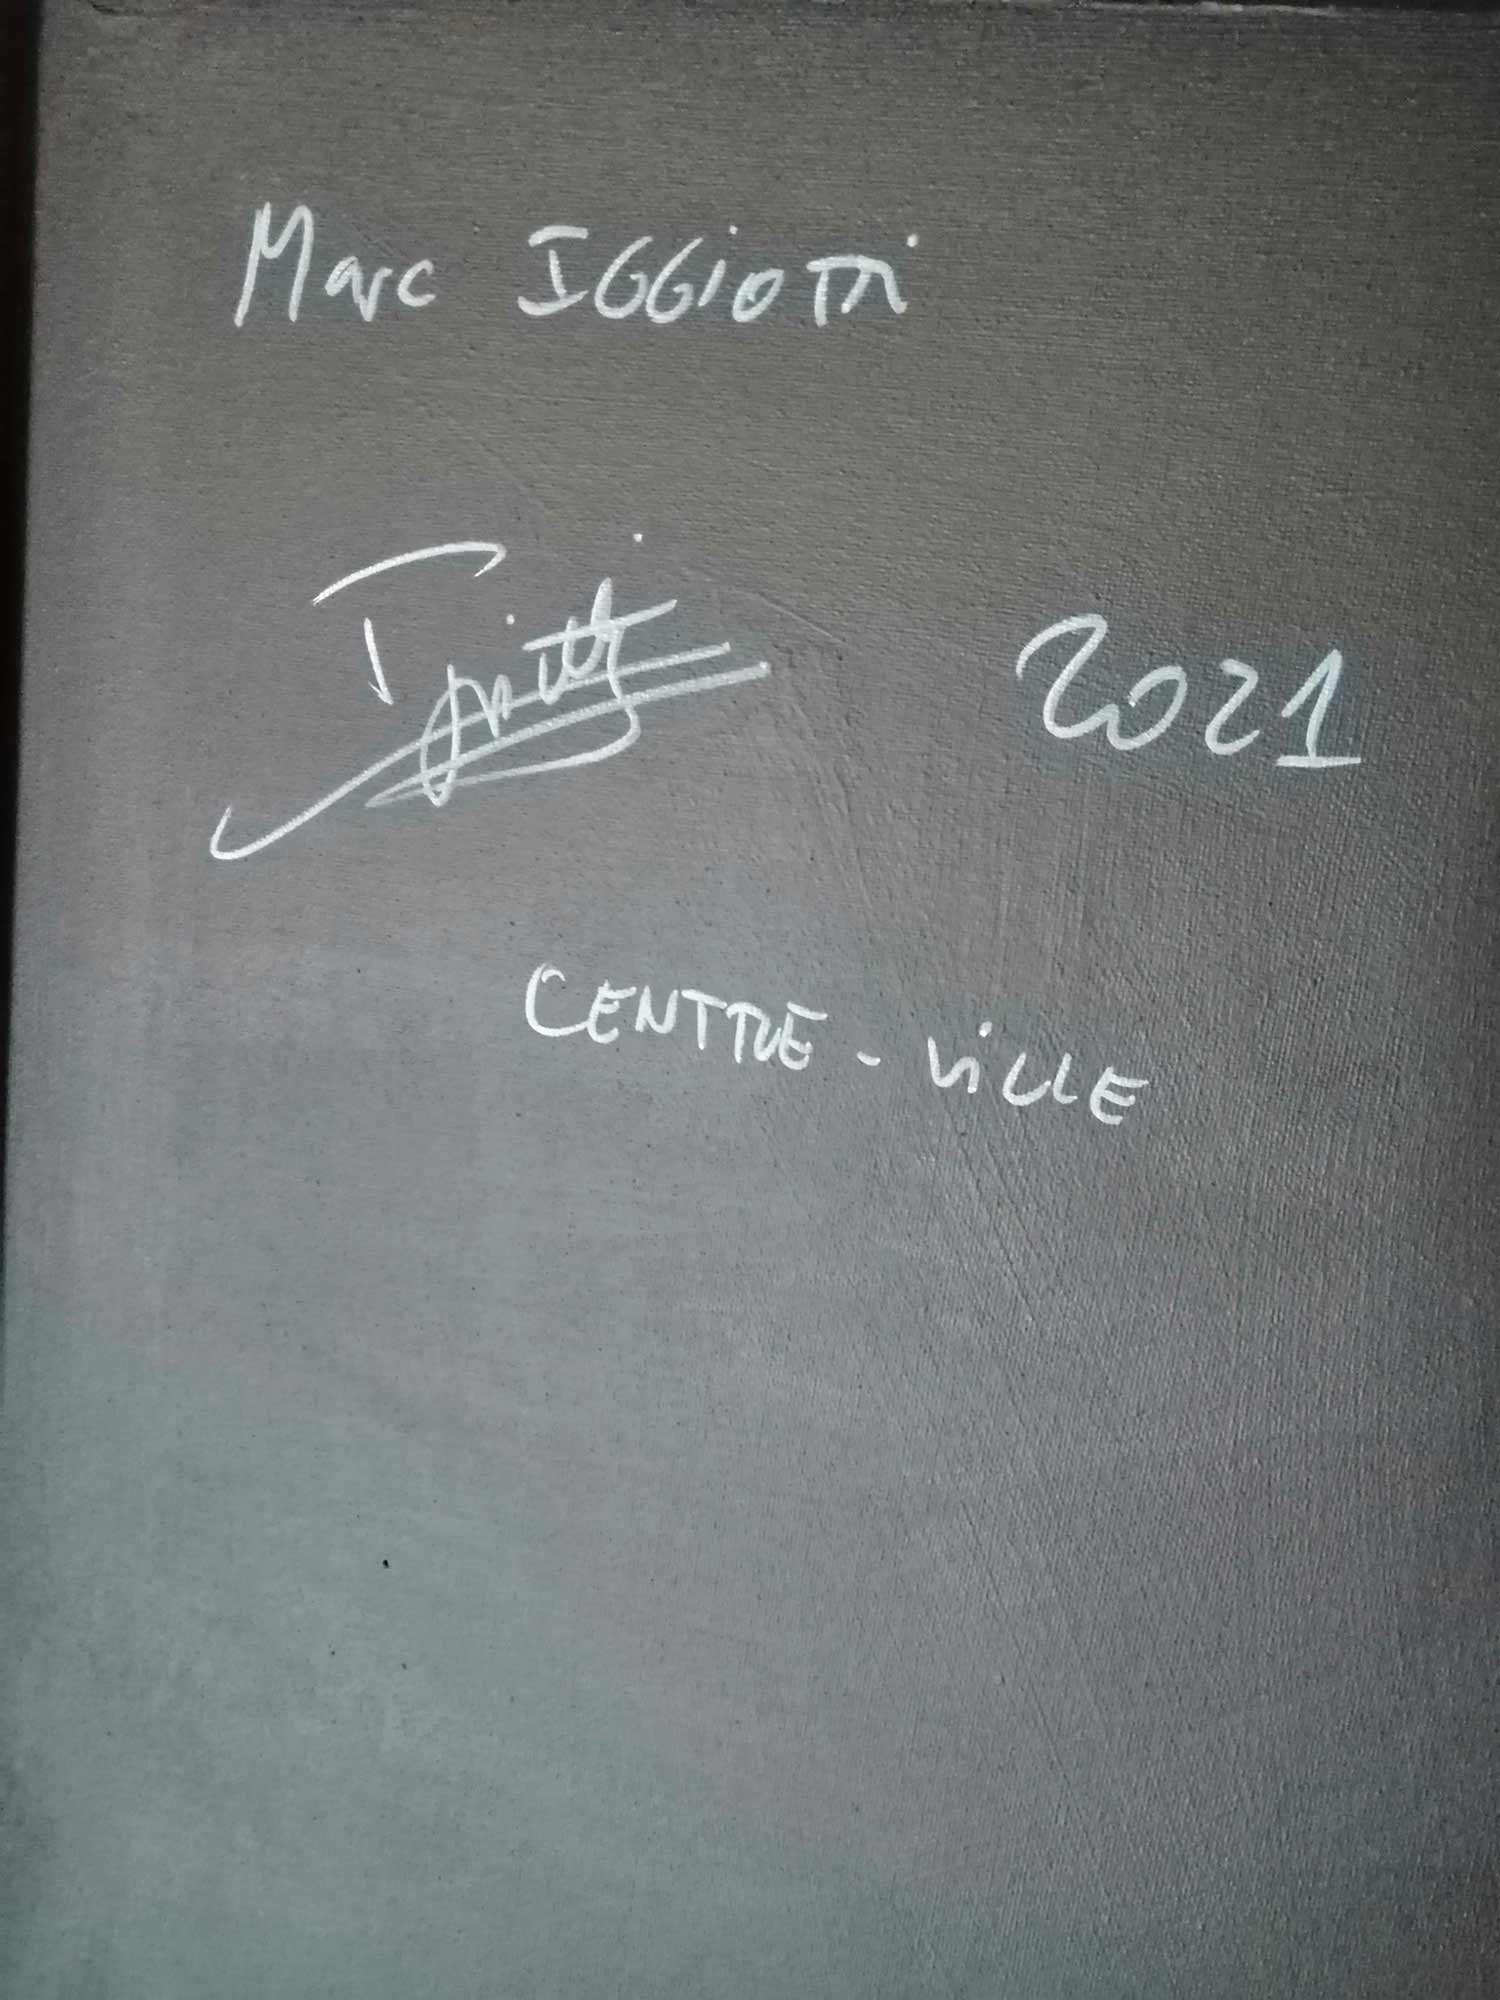 Marc IGGiOTTi
2021
CENTRE - ViLLE